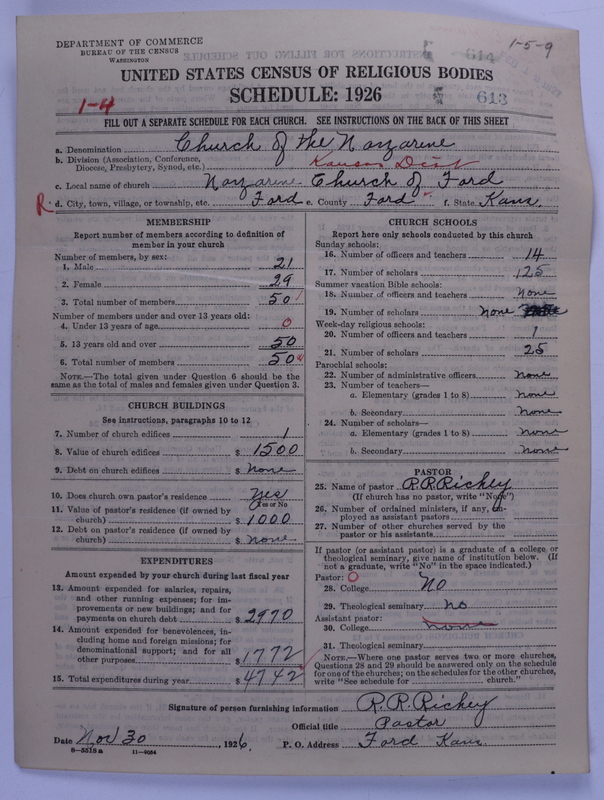 DEPARTMENT OF COMMERCE
BUREAU OF THE CENSUS
WASHINGTON
1-5-9
614
UNITED STATES CENSUS OF RELIGIOUS BODIES
SCHEDULE: 1926
1-4
613
FILL OUT A SEPARATE SCHEDULE FOR EACH CHURCH. SEE INSTRUCTIONS ON THE BACK OF THIS SHEET
a. Denomination Church of the Nazarene
b. Division (Association, Conference, Diocese, Presbytery, Synod, etc.) Kansas Dist
c. Local name of church Nazarene Church of Ford
R d. City, town, village, or township, etc. Ford e. County Ford f. State Kans.
MEMBERSHIP
Report number of members according to definition of
member in your church
Number of members, by sex:
1. Male 21
2. Female 29
3. Total number of members 50
Number of members under and over 13 years old:
4. Under 13 years of age 0
5. 13 years old and over 50
6. Total number of members 50
NOTE.—The total given under Question 6 should be
same as the total of males and females given under Question 3.
CHURCH BUILDINGS
See instructions, paragraphs 10 to 12
7. Number of church edifices 1
8. Value of church edifices $ 1500
9. Debt on church edifices $ None
10. Does church own pastor's residence Yes
Yes or No
11. Value of pastor's residence (if owned by
church) $ 1000
12. Debt on pastor's residence (if owned by
church) $ none
EXPENDITURES
Amount expended by your church during last fiscal year
13. Amount expended for salaries, repairs,
and other running expenses; for im-
provements or new buildings; and for
payments on church debt $ 2970
14. Amount expended for benevolences, in-
cluding home and foreign missions; for
denominational support; and for all
other purposes $ 1772
15. Total expenditures during year $ 4742
CHURCH SCHOOLS
Report here only schools conducted by this church
Sunday schools:
16. Number of officers and teachers 14
17. Number of scholars 125
Summer vacation Bible schools:
18. Number of officers and teachers None
19. Number of scholars None
Week-day religious schools:
20. Number of officers and teachers 1
21. Number of scholars 25
Parochial schools:
22. Number of administrative officers None
23. Number of teachers—
a. Elementary (grades 1 to 8) None
b. Secondary None
24. Number of scholars—
a. Elementary (grades 1 to 8) None
b. Secondary None
PASTOR
25. Name of pastor R.R. Rickey
(If church has no pastor, write "None")
26. Number of ordained ministers, if any, em-
ployed as assistant pastors
27. Number of other churches served by the
pastor or his assistants
If pastor (or assistant pastor) is a graduate of a college or
theological seminary, give name of institution below. (If
not a graduate, write "No" in the space indicated.)
Pastor: O
28. College No
29. Theological seminary No
Assistant pastor:
30. College none
31. Theological seminary
NOTE.—Where one pastor serves two or more churches,
Questions 28 and 29 should be answered only on the schedule
for one of the churches; on the schedules for the other churches,
write "See schedule for church."
Signature of person furnishing information R.R. Rickey
Official title Pastor
Date Nov 30, 1926. P. O. Address Ford Kans.
8-5518a 11-9034